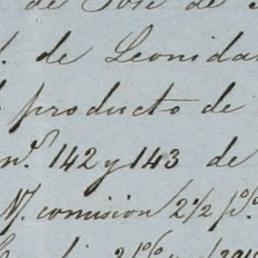 de José de
de Leonidas
producto de
nos. 142 y 143 de
N/. comision 2 1/2 p%.